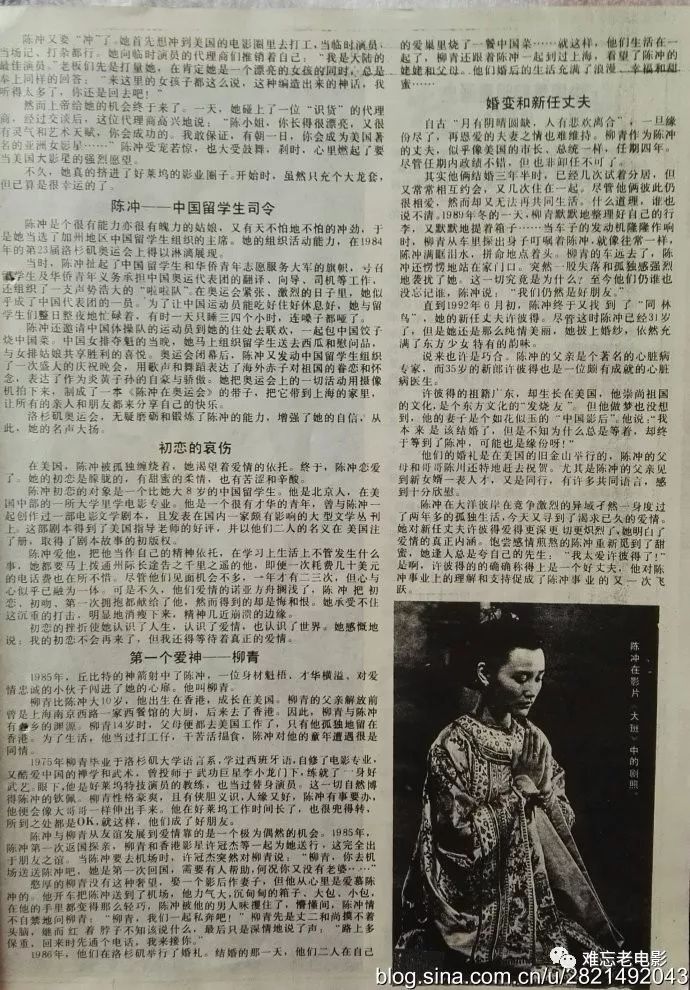 陈冲又要“冲”了。她首先想冲到美国的电影圈里去打工，当临时演员，
当场记、打杂都行。她向临时演员的代理商们推销着自己：“我是大陆的
最佳演员。”老板们先是打量她，在肯定她是一个漂亮的女孩的同时，总是
奉上同样的回答：“来这里的女孩子都这么说，这种编造出来的神话，我
听得太多了，你还是回去吧！”
然而上帝给她的机会终于来了。一天，她碰上了一位“识货”的代理
商，经过交谈后，这位代理商高兴地说：“陈小姐，你长得很漂亮，又很
有灵气和艺术天赋，你会成功的。我敢保证，有朝一日，你会成为美国著
名的亚洲女影星……”陈冲受宠若惊，也大受鼓舞，刹时，心里燃起了要
当美国大影星的强烈愿望。
不久，她真的挤进了好莱坞的影业圈子。开始时，虽然只充个大龙套，
但已算是很幸运的了。
陈冲——中国留学生司令
陈冲是个很有能力亦很有魄力的姑娘，又有天不怕地不怕的冲劲，于
是她当选了加州地区中国留学生组织的主席。她的组织活动能力，在1984
年的第23届洛杉矶奥运会上得以淋漓展现。
当时，陈冲扯起了中国留学生和华侨青年志愿服务大军的旗帜，号召
学生及华侨青年义务承担中国奥运代表团的翻译、向导、司机等工作，
还组织了一支声势浩大的“啦啦队”。在奥运会紧张、激烈的日子里，她似
乎成了中国代表团的一员。为了让中国运动员能吃好住好休息好，她与留
学生们整日整夜地忙碌着，有时一天只睡三四个小时，连嗓子都哑了。
陈冲还邀请中国体操队的运动员到她的住处去联欢，一起包中国饺子
烧中国菜。中国女排夺魁的当晚，她马上组织留学生送去西瓜和慰问品，
与女排姑娘共享胜利的喜悦。奥运会闭幕后，陈冲又发动中国留学生组织
了一次盛大的庆祝晚会，用歌声和舞蹈表达了海外赤子对祖国的眷恋和怀
念，表达了作为炎黄子孙的自豪与骄傲。她把奥运会上的一切活动用摄像
机拍下来，制成了一本《陈冲在奥运会》的带子，把它带到上海的家里，
让所有的亲人和朋友都来分享自己的快乐。
洛杉矶奥运会，无疑磨砺和锻炼了陈冲的能力，增强了她的自信，从
此，她的名声大扬。
初恋的哀伤
在美国，陈冲被孤独缠绕着，她渴望着爱情的依托。终于，陈冲恋爱
了。她的初恋是朦胧的，有甜蜜的柔情，也有苦涩和辛酸。
陈冲初恋的对象是一个比她大8岁的中国留学生。他是北京人，在美
国中部的一所大学里学电影专业。他是一个很有才华的青年，曾与陈冲一
起创作过一部电影文学剧本，且发表在国内一家颇有影响的大型文学丛刊
上。这部剧本得到了美国指导老师的好评，并以他们二人的名义在美国注
了册，取得了剧本故事的初版权。
陈冲爱他，把他当作自己的精神依托，在学习上生活上不管发生什么
事，她都要马上拨通州际长途告之千里之遥的他，即便一次耗费几十美元
的电话费也在所不惜。尽管他们见面机会不多，一年才有二三次，但心与
心似乎已融为一体。可是不久，他们爱情的诺亚方舟搁浅了，陈冲把初
恋、初吻、第一次拥抱都献给了他，然而得到的却是悔和恨。她承受不住
这沉重的打击，明显地消瘦下来，精神几近崩溃的边缘。
初恋的挫折使她认识了人生，认识了爱情，也认识了世界。她感慨地
说：我的初恋不会再来了，但我还得等待着真正的爱情。
第一个爱神——柳青
1985年，丘比特的神箭射中了陈冲，一位身材魁梧、才华横溢、对爱
情忠诚的小伙子闯进了她的心扉。他叫柳青。
柳青比陈冲大10岁，他出生在香港，成长在美国。柳青的父亲解放前
曾是上海南京西路一家西餐馆的大厨，后来去了香港。因此，柳青与陈冲
有乡的渊源。柳青14岁时，父母便都去美国工作了，只有他孤独地留在
香港。为了生活，他当过打工仔，干苦活揾食，陈冲对他的童年遭遇很是
同情。
1975年柳青毕业于洛杉矶大学语言系，学过西班牙语，自修了电影专业，
又酷爱中国的禅学和武术，曾投师于武功巨星李小龙门下，练就了一身好
武艺。眼下，他是好莱坞特技演员的教练，也当过替身演员。这一切自然博
得陈冲的钦佩。柳青性格豪爽，且有侠胆义识，人缘又好，陈冲有事要办，
他便会像大哥哥一样伸出手来。他在好莱坞工作时间长了，也很兜得转，
所到之处都是OK，就这样，他们成了好朋友。
陈冲与柳青从友谊发展到爱情靠的是一个极为偶然的机会。1985年，
陈冲第一次返国探亲，柳青和香港影星许冠杰等一起为她送行，这完全出
于朋友之谊。当陈冲要去机场时，许冠杰突然对柳青说：“柳青，你去机
场送送陈冲吧，她是第一次回国，需要有人帮助，何况你又没有老婆……”
憨厚的柳青没有这种奢望，娶一个影后作妻子，但他从心里是爱慕陈
冲的。他开车把陈冲送到了机场，他力气大，沉甸甸的箱子、大包、小包，
在他的手里都变得那么轻巧，陈冲被他的男人味攫住了，懵懂间，陈冲情
不自禁地问柳青：“柳青，我们一起私奔吧！”柳青先是丈二和尚摸不着
头脑，继而红着脖子不知该说什么，最后只是深情地说了声：“路上多
保重，回来时先通个电话，我来接你。”
1986年，他们在洛杉矶举行了婚礼。结婚的那一天，他们二人在自己
的爱巢里烧了一餐中国菜……就这样，他们生活在一
起了，柳青还跟着陈冲一起到过上海，看望了陈冲的
姥姥和父母。他们婚后的生活充满了浪漫、幸福和甜
蜜……
婚变和新任丈夫
自古“月有阴晴圆缺，人有悲欢离合”，一旦缘
份尽了，再恩爱的夫妻之情也难维持。柳青作为陈冲
的丈夫，似乎像美国的市长、总统一样，任期四年。
尽管任期内政绩不错，但也非卸任不可了。
其实他俩结婚三年半时，已经几次试着分居，但
又常常相互约会，又几次住在一起。尽管他俩彼此仍
很相爱，然而却又无法再共同生活。什么道理，谁也
说不清。1989年冬的一天，柳青默默地整理好自己的行
李，又默默地提着箱子……当车子的发动机隆隆作响
时，柳青从车里探出身子叮嘱着陈冲，就像往常一样，
陈冲满眶泪水，拼命地点着头。柳青的车远去了，陈
冲还愣愣地站在家门口。突然一股失落和孤独感强烈
地袭扰了她。这一切究竟是为什么？至今他们俩谁也
没忘记谁，陈冲说：“我们仍然是好朋友。”
直到1992年6月初，陈冲终于又找到了“同林
鸟”，她的新任丈夫许彼得。尽管这时陈冲已经31岁
了，但是她还是那么纯情美丽，她披上婚纱，依然充
满了东方少女特有的韵味。
说来也许是巧合。陈冲的父亲是个著名的心脏病
专家，而35岁的新郎许彼得也是一位颇有成就的心脏
病医生。
许彼得的祖籍广东，却生长在美国，他崇尚祖国
的文化，是个东方文化的“发烧友”。但他做梦也没想
到，他的妻子是个如花似玉的“中国影后”。他说：“我
本来是该结婚了，但是不知为什么总是等着，却终
于等到了陈冲，可能也是缘份呀！”
他们的婚礼是在美国的旧金山举行的，陈冲的父
母和哥哥陈川还特地赶去祝贺。尤其是陈冲的父亲见
到新女婿一表人才，又是同行，有许多共同语言，感
到十分欣慰。
陈冲在大洋彼岸在竞争激烈的异域孑然一身度过
了两年多的孤独生活，今天又寻到了渴求已久的爱情。
她对新任丈夫许彼得爱得更深更切更炽烈了，她明白了
爱情的真正内涵。饱尝感情煎熬的陈冲重新觅到了甜
蜜，她逢人总是夸自己的先生：“我太爱许彼得了！”
是啊，许彼得的的确确称得上是一个好丈夫，他对陈
冲事业上的理解和支持促成了陈冲事业的又一次飞
跃。
陈冲在影片《大班》中的剧照。
难忘老电影
blog.sina.com.cn/u/2821492043